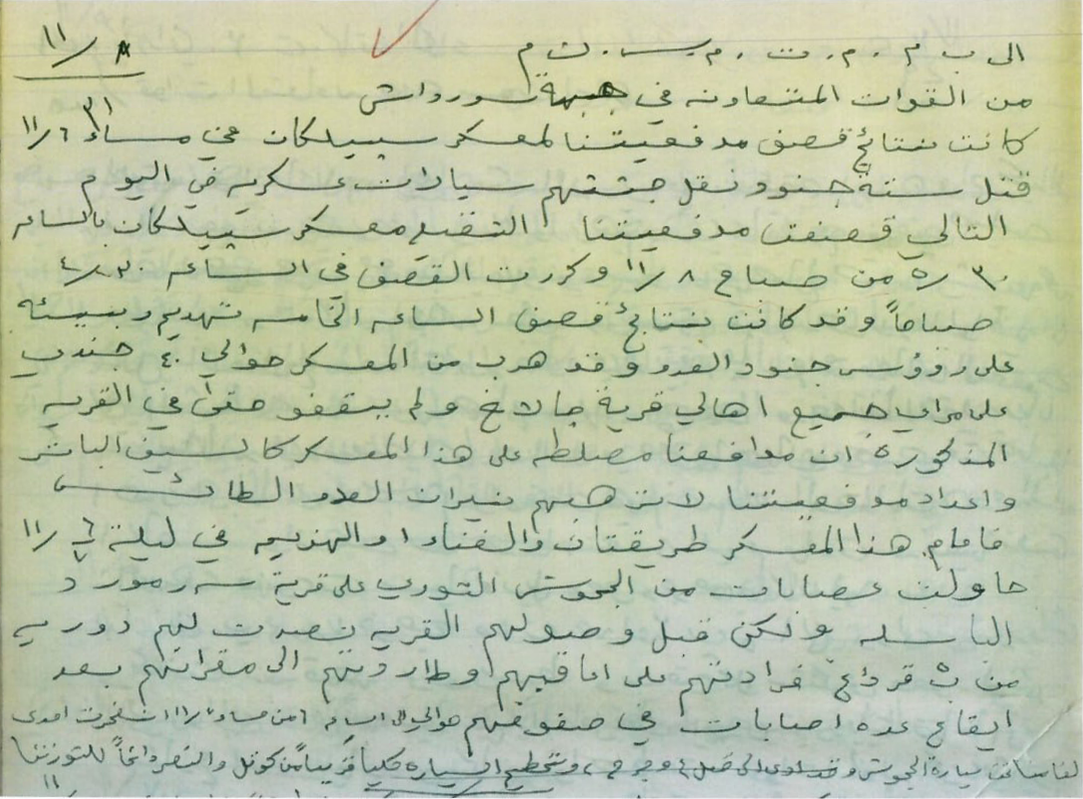 ١١/٨
الى ب م . م . ت . م . س . ث م
من القوات المتعاونه في جبهة سورداش
كانت نتائج قصف مدفعيتنا لمعسكر سيبيلكان في مساء ١١/٦
قتل ستة جنود ونقل جثثهم سيارات عسكريه في اليوم
التالي قصفت مدفعيتنا الثقيله معسكر سيبيلكان بالساعه
٥/٣٠ من صباح ١١/٨ وكررت القصف في الساعه ٤/٣٠
صباحاً وقد كانت نتائج قصف الساعه الخامسه تهديم ربيئه
على رؤوس جنود العدو وقد هرب من المعسكر حوالي ٤٠ جندي
على مرأى جميع اهالي قرية جالاخ ولم يتقفو حتى في القريه
المذكوره ان مدافعنا مصلطه على هذا المعسكر كالسيف الباتر
واعداد مدفعيتنا لاترهبهم نيران العدو الطائش
فامام هذا المعسكر طريقتان والفناء او الهزيمه في ليلة ١١/٦
حاولت عصابات من الجحوش الثوري على قرية سه رمورد
الباسله ولكن قبل وصولهم القريه تصدت لهم دوريه
من ث قرداغ فرادتهم على اعاقبهم وطاردتهم الى مقراتهم بعد
ايقاع عده اصابات في صفوفهم حوالي الساعه ٦ من مساء ١١/٦ انفجرت احدى
الغامنا تحت سيارة الجحوش وقد ادى الى قتل ٤ وجرح ٤ وتحطيم السياره كلياً قريباً من كوتل والنصر دائماً للثورتنا
١١